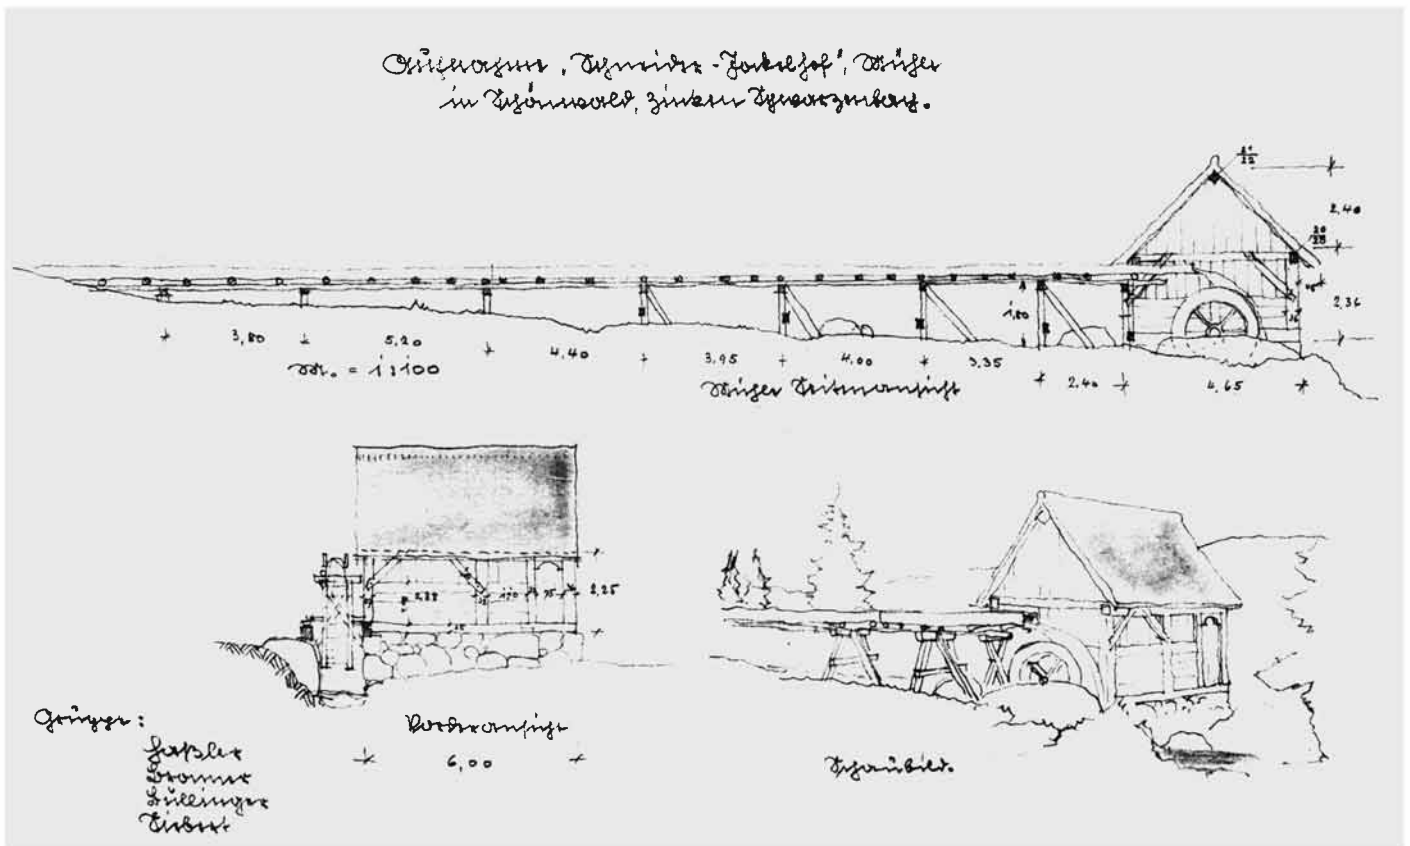 Aufnahme „Schneider-Jockelhof", Mühle
in Schönwald, Zinken Schwarzenbach.
21/22
2,40
20/25
1,80
2,36
3,80
5,20
4,40
3,95
4,00
3,35
2,40
4,65
M. = 1:100
Mühle Seitenansicht
2,25
Gruppe:
Vorderansicht
6,00
Schaubild.
Haßler
Bronner
Bullinger
Siebert